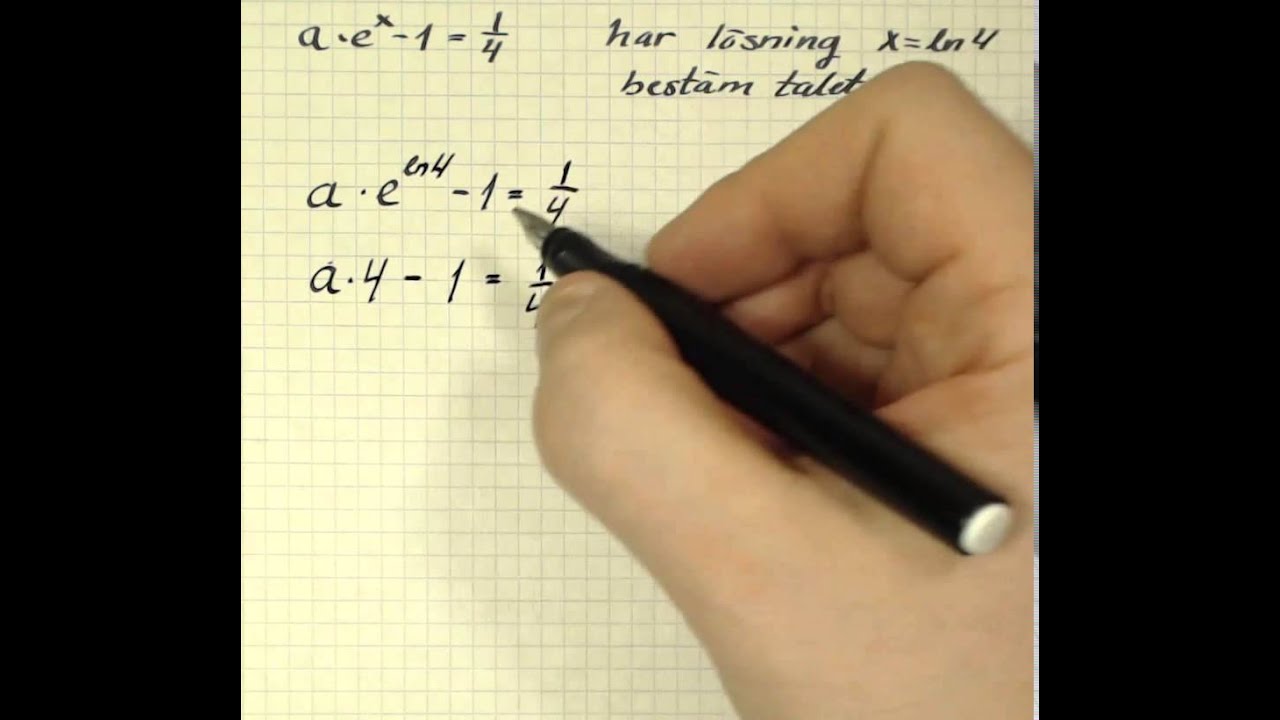 a·eˣ-1=1/4 har lösning x=ln4
bestäm talet
a·e^ln4-1=1/4
a·4-1=1/4